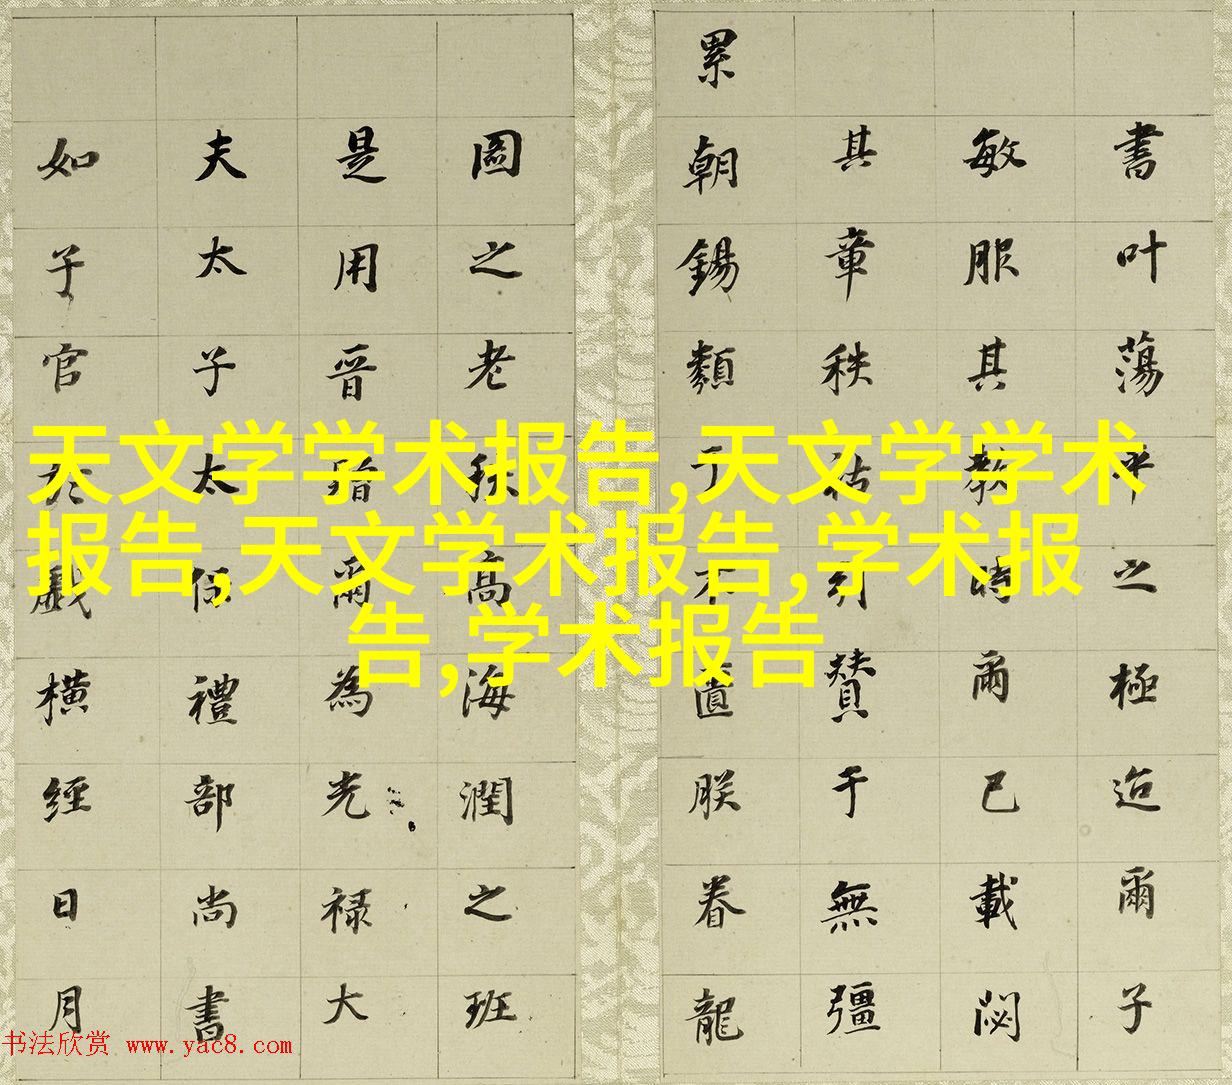 書叶蕩平之極迨爾子
敏服其教時爾已載閟
其章秩祜引贊于無疆
累朝錫類于不匱朕眷龍
圖之老秩高海潤之班
是用晋階爾為光禄大
夫太子太保禮部尚書
如子官於戲橫經日月
天文学学术报告,天文学学术
报告,天文学术报告,学术报
告,学术报告
书法欣赏 www.yac8.com